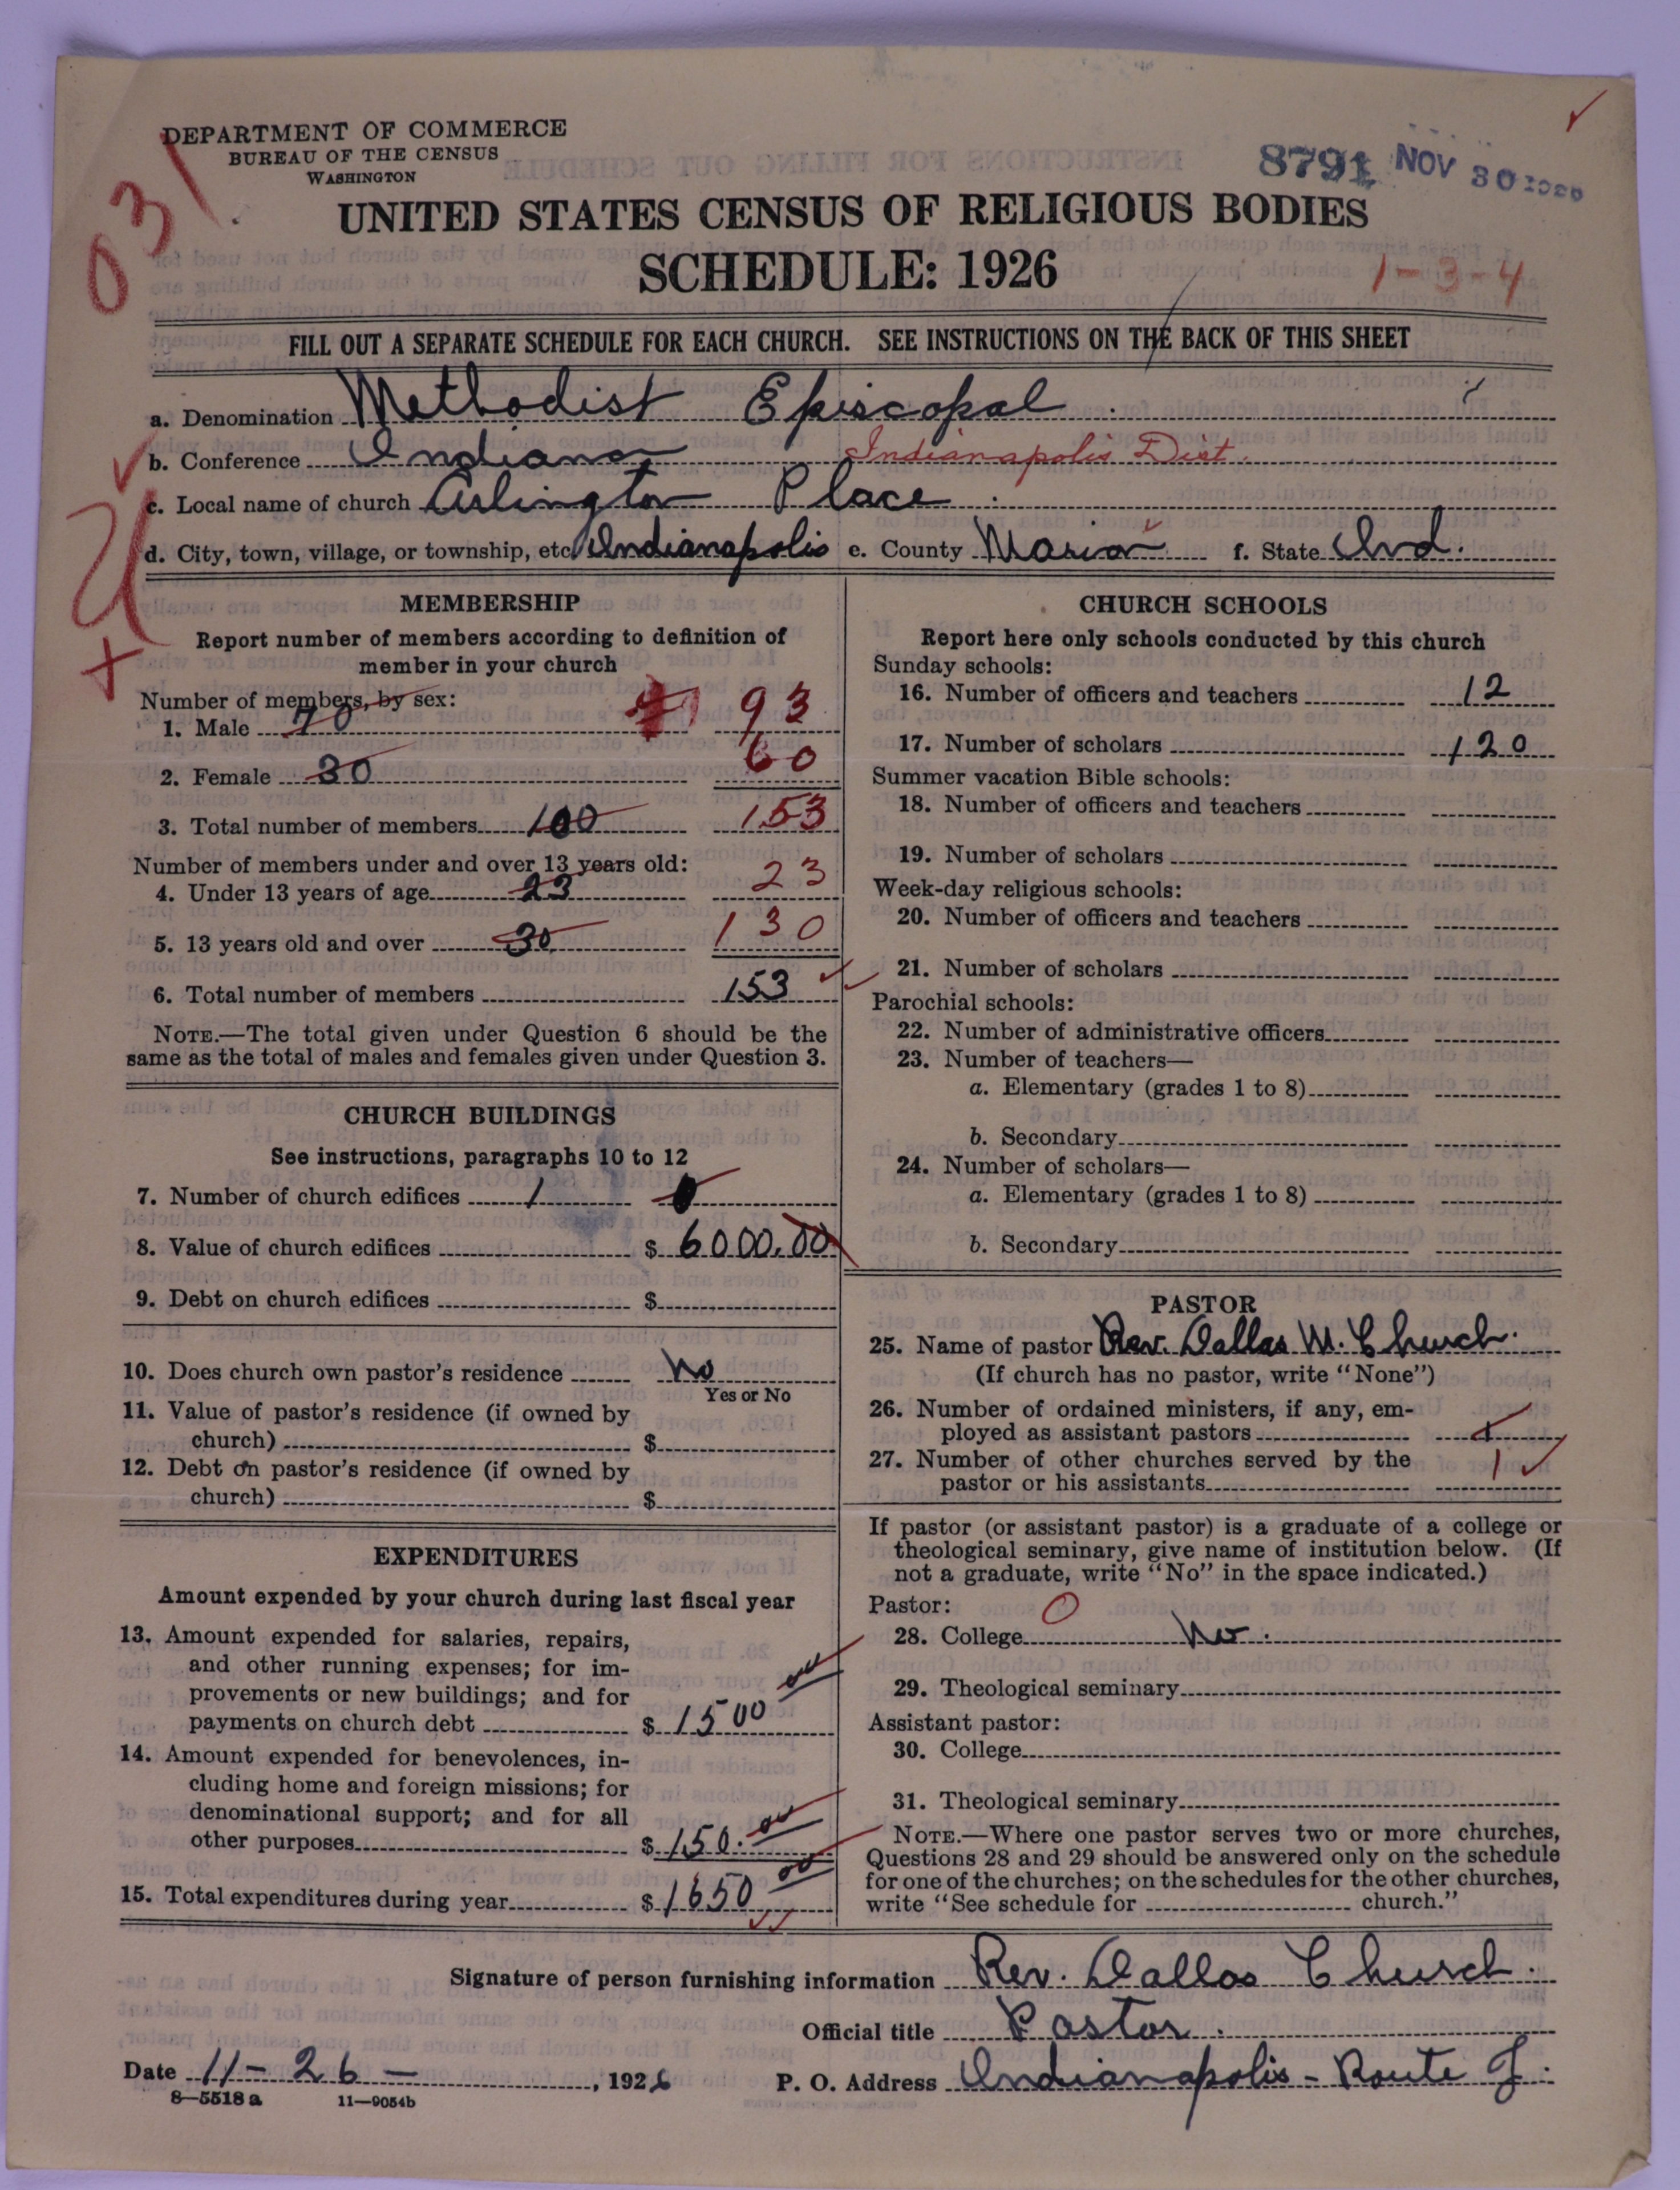 DEPARTMENT OF COMMERCE
BUREAU OF THE CENSUS
WASHINGTON
8791 NOV 30 1926
031
UNITED STATES CENSUS OF RELIGIOUS BODIES
SCHEDULE: 1926
1-3-4
FILL OUT A SEPARATE SCHEDULE FOR EACH CHURCH. SEE INSTRUCTIONS ON THE BACK OF THIS SHEET
a. Denomination Methodist Episcopal
b. Conference Indiana Indianapolis Dist.
c. Local name of church Arlington Place
d. City, town, village, or township, etc. Indianapolis e. County Marion f. State Ind.
MEMBERSHIP
Report number of members according to definition of
member in your church
Number of members, by sex:
1. Male 70 93
2. Female 30 60
3. Total number of members 100 153
Number of members under and over 13 years old:
4. Under 13 years of age 23 23
5. 13 years old and over 30 130
6. Total number of members 153
NOTE.—The total given under Question 6 should be the
same as the total of males and females given under Question 3.
CHURCH BUILDINGS
See instructions, paragraphs 10 to 12
7. Number of church edifices 1
8. Value of church edifices $ 6000.00
9. Debt on church edifices $
10. Does church own pastor's residence No
Yes or No
11. Value of pastor's residence (if owned by
church) $
12. Debt on pastor's residence (if owned by
church) $
EXPENDITURES
Amount expended by your church during last fiscal year
13. Amount expended for salaries, repairs,
and other running expenses; for im-
provements or new buildings; and for
payments on church debt $ 1500 00
14. Amount expended for benevolences, in-
cluding home and foreign missions; for
denominational support; and for all
other purposes $ 150. 00
15. Total expenditures during year $ 1650 00
CHURCH SCHOOLS
Report here only schools conducted by this church
Sunday schools:
16. Number of officers and teachers 12
17. Number of scholars 120
Summer vacation Bible schools:
18. Number of officers and teachers
19. Number of scholars
Week-day religious schools:
20. Number of officers and teachers
21. Number of scholars
Parochial schools:
22. Number of administrative officers
23. Number of teachers—
a. Elementary (grades 1 to 8)
b. Secondary
24. Number of scholars—
a. Elementary (grades 1 to 8)
b. Secondary
PASTOR
25. Name of pastor Rev. Dallas M. Church.
(If church has no pastor, write "None")
26. Number of ordained ministers, if any, em-
ployed as assistant pastors 1
27. Number of other churches served by the 1
pastor or his assistants
If pastor (or assistant pastor) is a graduate of a college or
theological seminary, give name of institution below. (If
not a graduate, write "No" in the space indicated.)
Pastor: 0
28. College No.
29. Theological seminary
Assistant pastor:
30. College
31. Theological seminary
NOTE.—Where one pastor serves two or more churches,
Questions 28 and 29 should be answered only on the schedule
for one of the churches; on the schedules for the other churches,
write "See schedule for church."
Signature of person furnishing information Rev. Dallas Church.
Official title Pastor.
Date 11-26-, 1926 P. O. Address Indianapolis - Route J.
8—5518 a 11—9054b